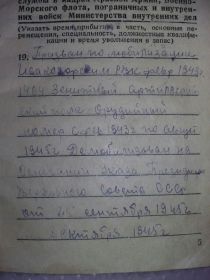 служба в кадрах Красной Армии, Военно-
Морского флота, пограничных и внутрен-
них войск Министерства внутренних дел
(Указать время прибытия в часть, основные пе-
ремещения, специальность, должностные квалифи-
кации и время увольнения в запас)
19. Призван по мобилизации
Ивановским РВК февр 1943г.
1464 Зенитный Артиллерий-
ский полк Орудийный
номер с 1943г по
1945г. Демобилизован на
основании Указа Президиума
Верховного Совета СССР
от 25 сентября 1945г.
октября 1945г.
5